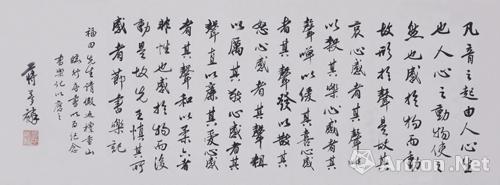 凡音之起由人心生
也人心之動物使之
然也感於物而動
故形於聲是故其
哀心感者其聲噍
以殺其樂心感者其
聲嘽以緩其喜心感
者其聲發以散其
怒心感者其聲粗
以厲其敬心感者其
聲直以廉其愛心感
者其聲和以柔六者
非性也感於物而後
動是故先王慎其所
感者節書樂記
福田先生請
香山
臨行命書以為紀念
書樂記以應之
Artron.Net